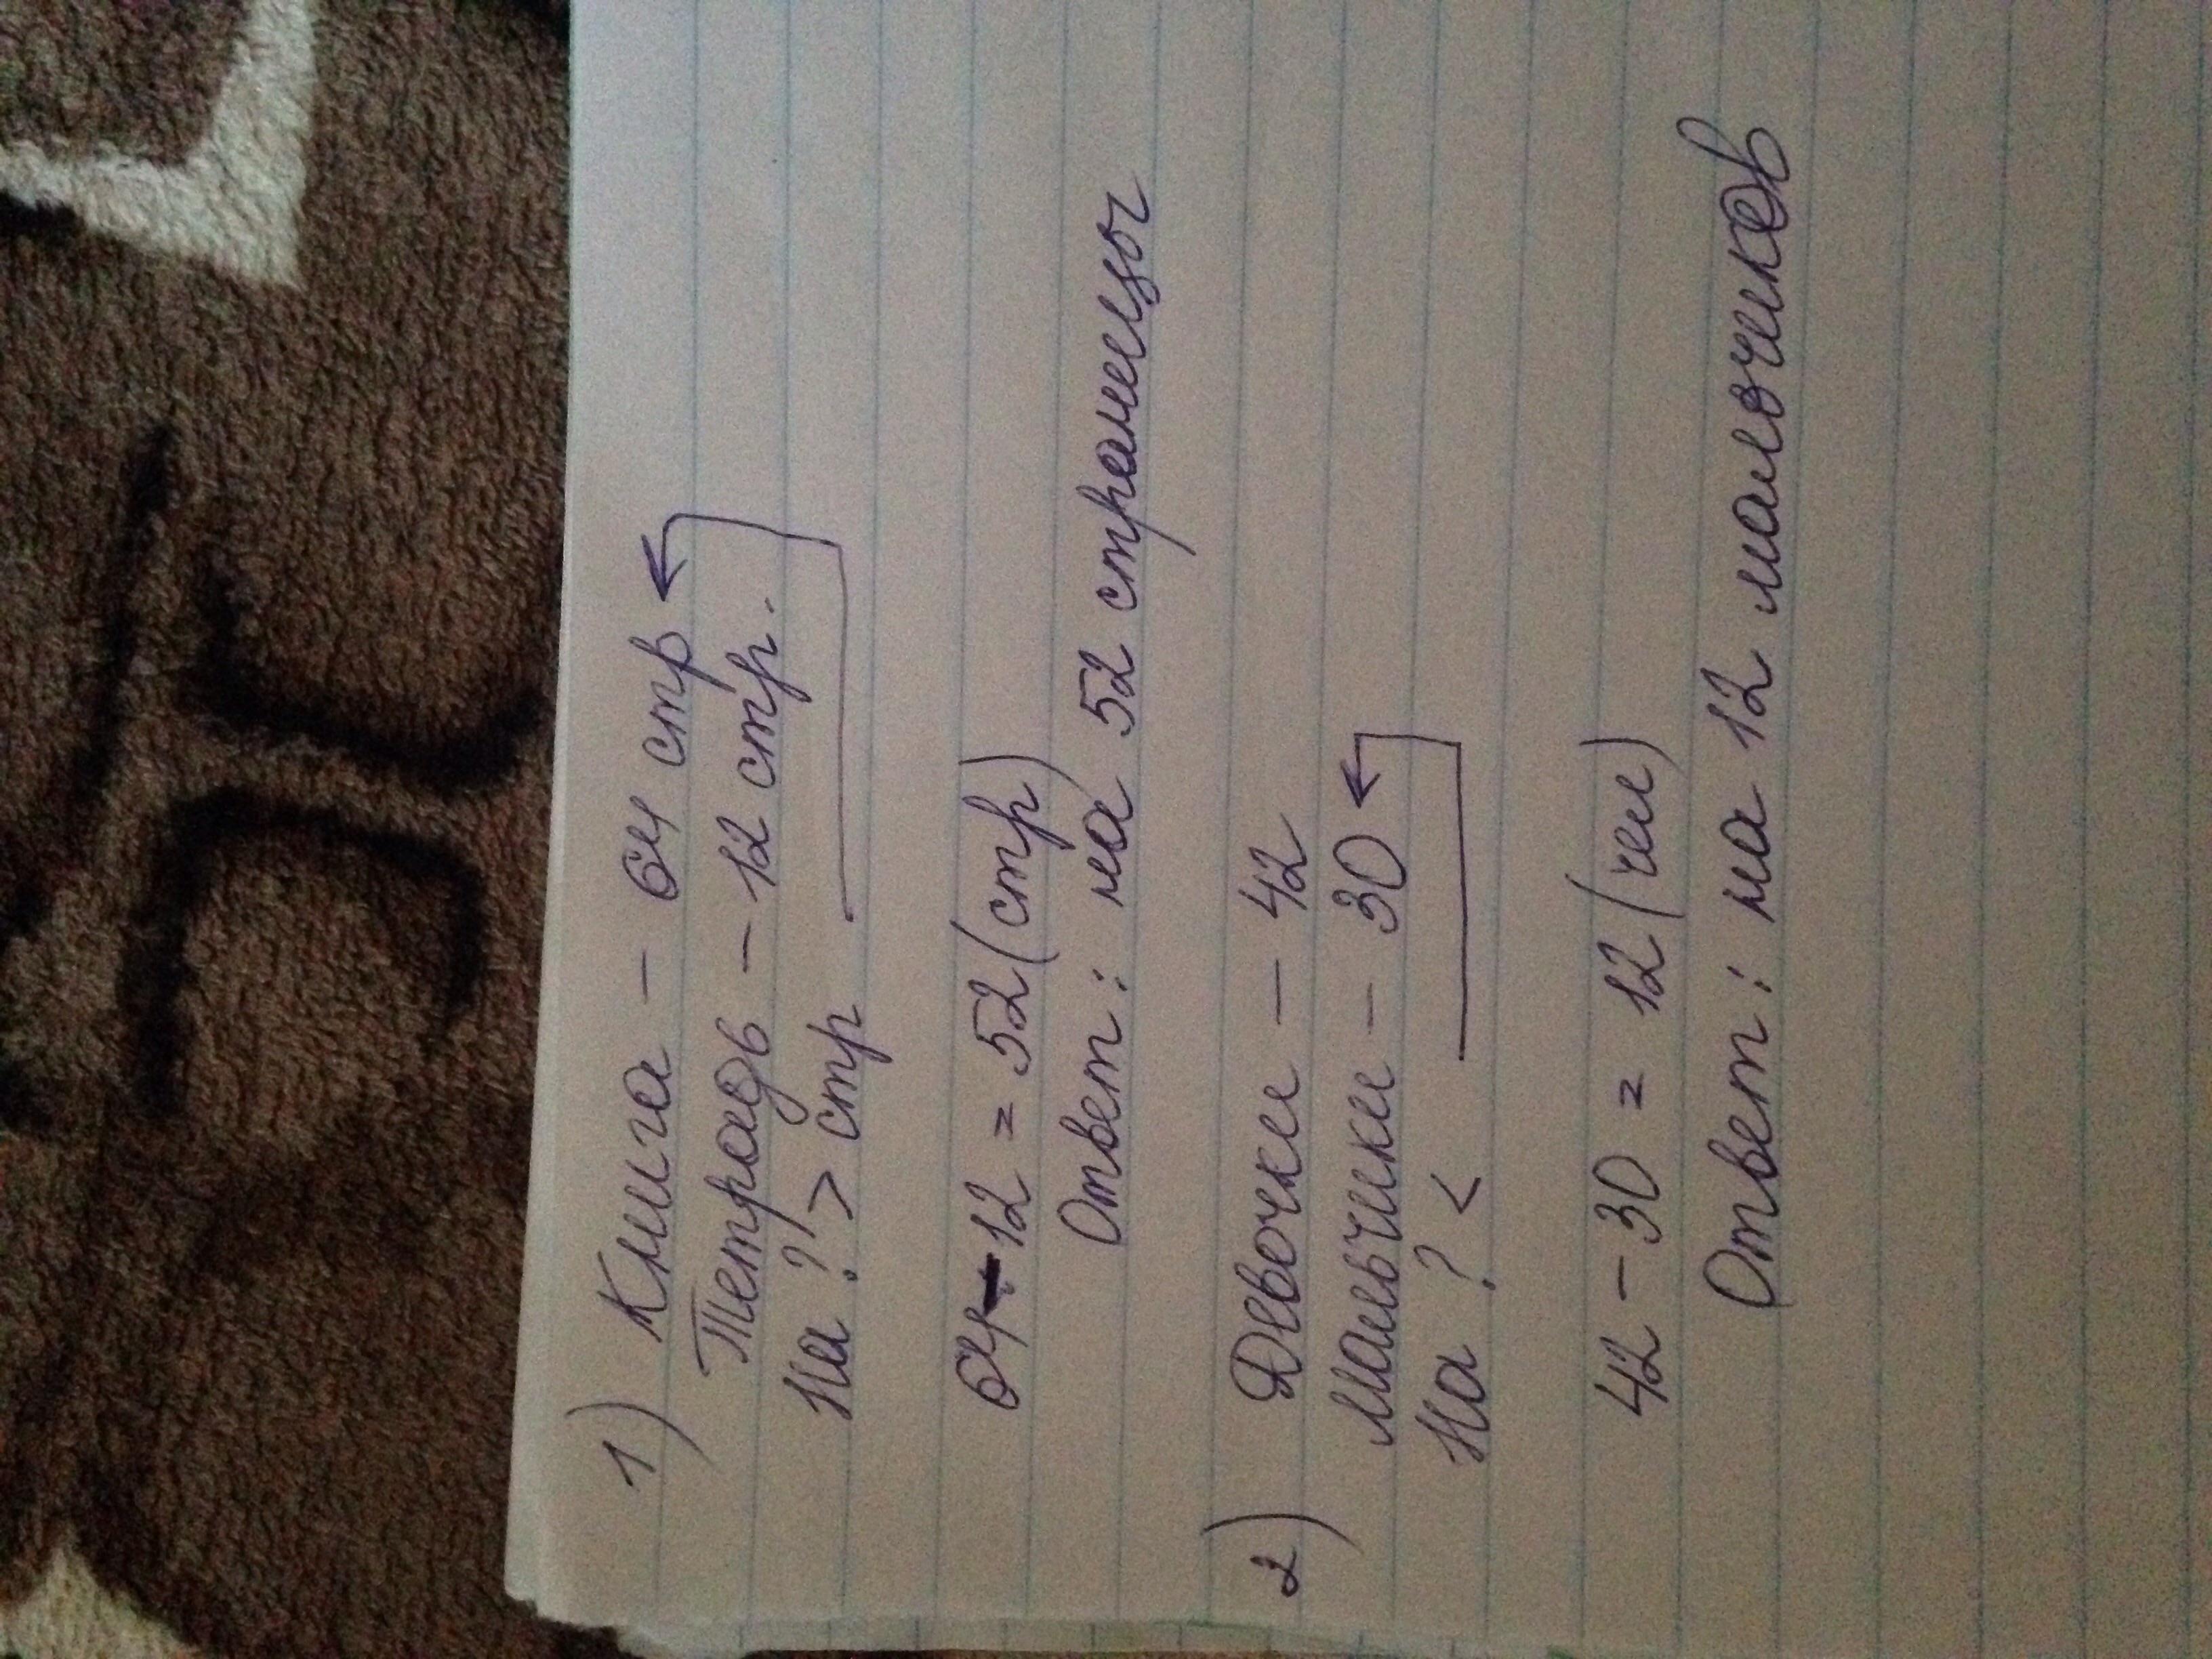 1) Книга - 64 стр
Тетрадь - 12 стр.
На ? > стр
64-12 = 52 (стр)
Ответ: на 52 страницы
2) Девочки - 42
Мальчики - 30
На ? <
42 - 30 = 12 (чел)
Ответ: на 12 мальчиков